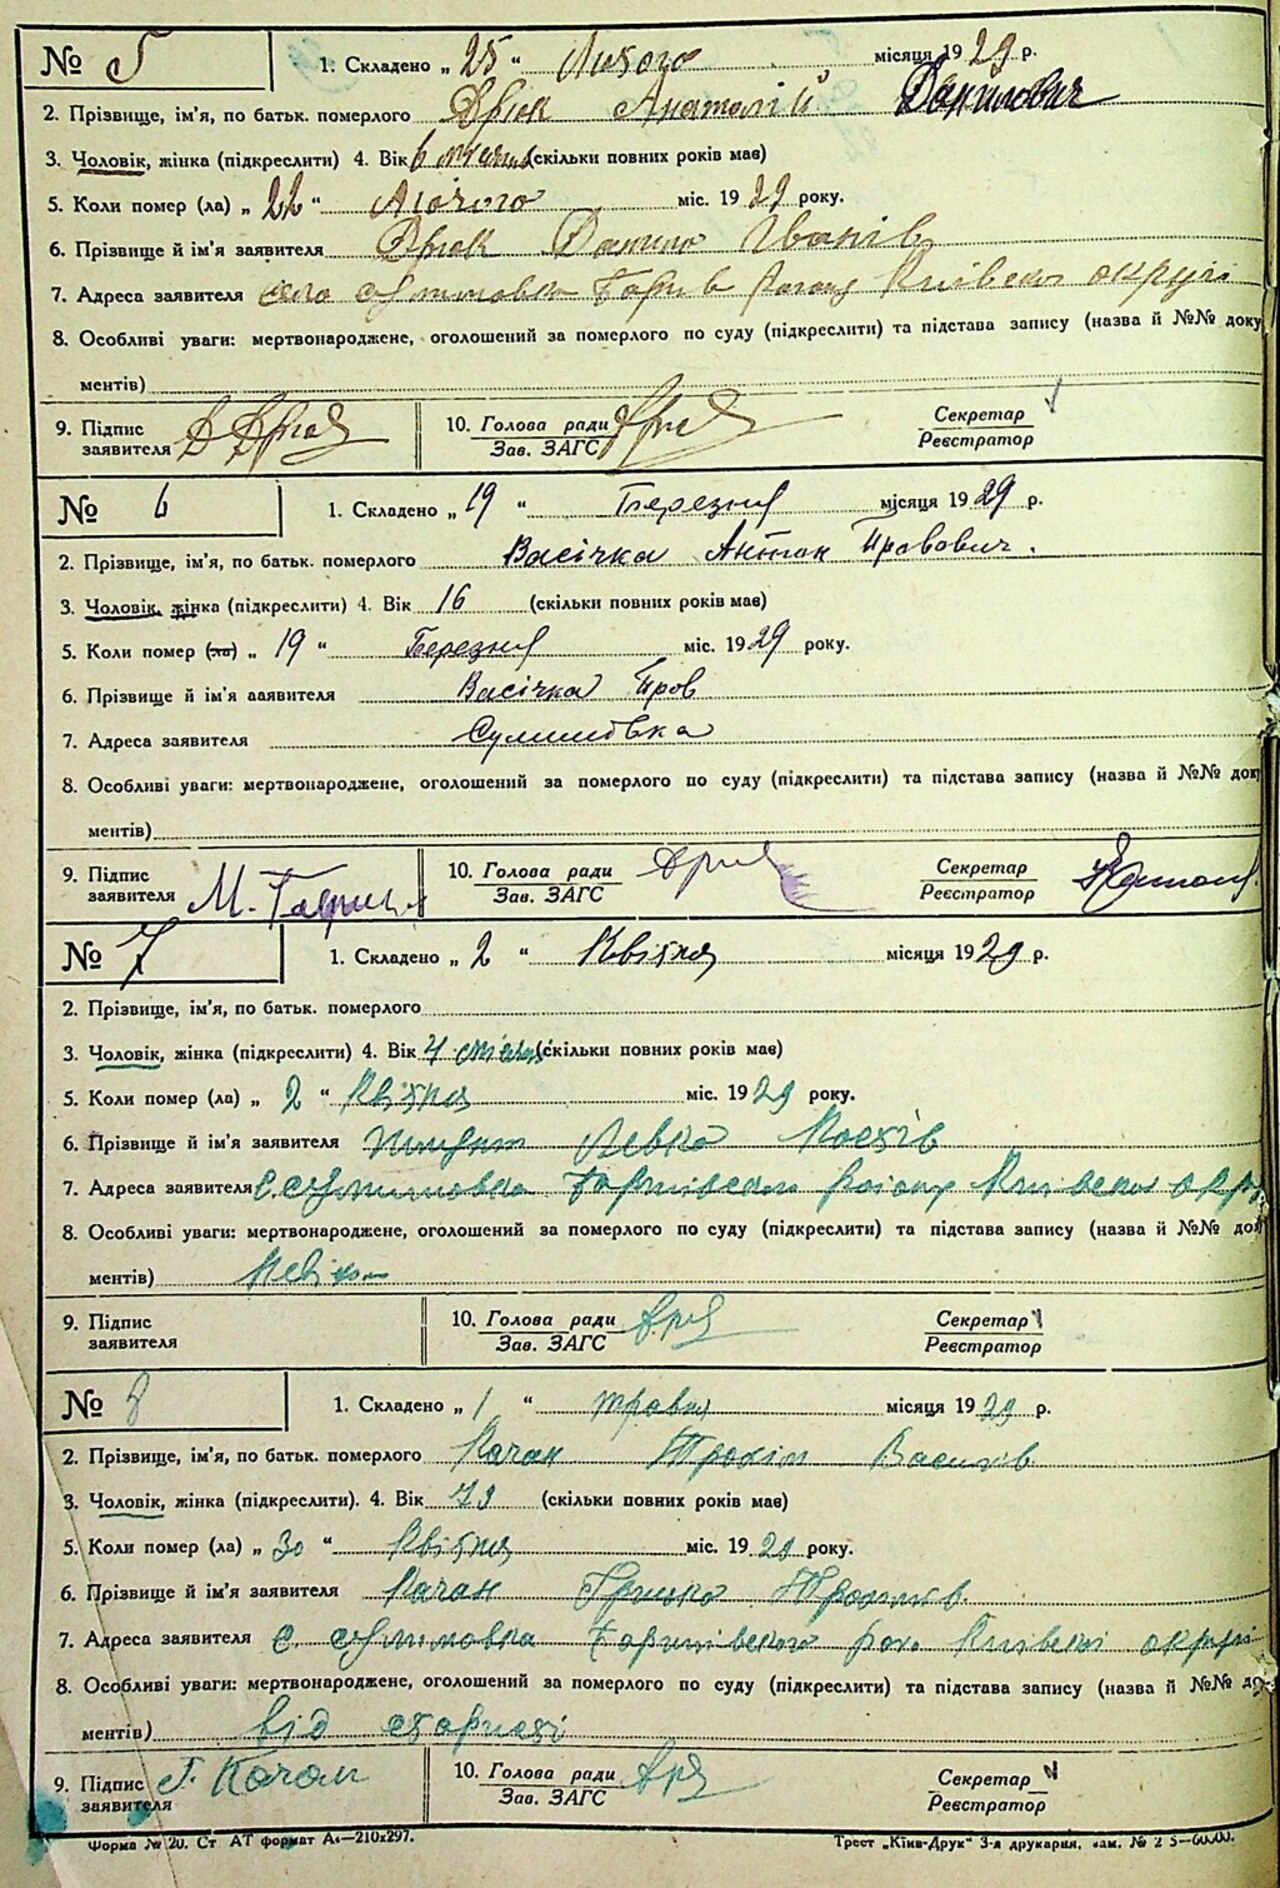 № 5 1. Складено „ 25 “ Лютого місяця 1929 р.
2. Прізвище, ім'я, по батьк. померлого Дрюк Анатолій Данілович
3. Чоловік, жінка (підкреслити) 4. Вік 6 (скільки повних років має)
5. Коли помер (ла) „ 22 “ Лютого міс. 1929 року.
6. Прізвище й ім'я заявителя Дрюк Данило Іванів
7. Адреса заявителя село Сулимовка Київской округі
8. Особливі уваги: мертвонароджене, оголошений за померлого по суду (підкреслити) та підстава запису (назва й №№ доку
ментів)
9. Підпис заявителя Д Дрюк 10. Голова ради Зав. ЗАГС Секретар Реєстратор
№ 6 1. Складено „ 19 “ Березня місяця 1929 р.
2. Прізвище, ім'я, по батьк. померлого Васічка Антон
3. Чоловік, жінка (підкреслити) 4. Вік 16 (скільки повних років має)
5. Коли помер (ла) „ 19 “ Березня міс. 1929 року.
6. Прізвище й ім'я заявителя Васічка
7. Адреса заявителя Сулимовка
8. Особливі уваги: мертвонароджене, оголошений за померлого по суду (підкреслити) та підстава запису (назва й №№ доку
ментів)
9. Підпис заявителя М. 10. Голова ради Зав. ЗАГС Секретар Реєстратор
№ 7 1. Складено „ 2 “ Квітня місяця 1929 р.
2. Прізвище, ім'я, по батьк. померлого
3. Чоловік, жінка (підкреслити) 4. Вік (скільки повних років має)
5. Коли помер (ла) „ 2 “ Квітня міс. 1929 року.
6. Прізвище й ім'я заявителя Левко Костів
7. Адреса заявителя С. Сулимовка району Київской окру
8. Особливі уваги: мертвонароджене, оголошений за померлого по суду (підкреслити) та підстава запису (назва й №№ доку
ментів)
9. Підпис заявителя 10. Голова ради Зав. ЗАГС Секретар Реєстратор
№ 8 1. Складено „ 1 “ травня місяця 1929 р.
2. Прізвище, ім'я, по батьк. померлого Качан Трохім Василів
3. Чоловік, жінка (підкреслити). 4. Вік 73 (скільки повних років має)
5. Коли помер (ла) „ 30 “ Квітня міс. 1929 року.
6. Прізвище й ім'я заявителя Качан Грицько Трохимів
7. Адреса заявителя С. Сулимовка Київскої округі
8. Особливі уваги: мертвонароджене, оголошений за померлого по суду (підкреслити) та підстава запису (назва й №№ до
ментів) від старості
9. Підпис заявителя Г. Качан 10. Голова ради Зав. ЗАГС Секретар Реєстратор
Форма № 20. Ст. АТ формат А4—210х297. Трест „Київ-Друк“ 3-я друкарня,